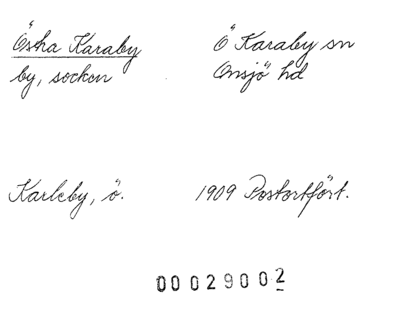 Östra Karaby
Ö Karaby sn
by, socken
Onsjö hd
Karleby, ö.
1909 Postortfört.
00029002